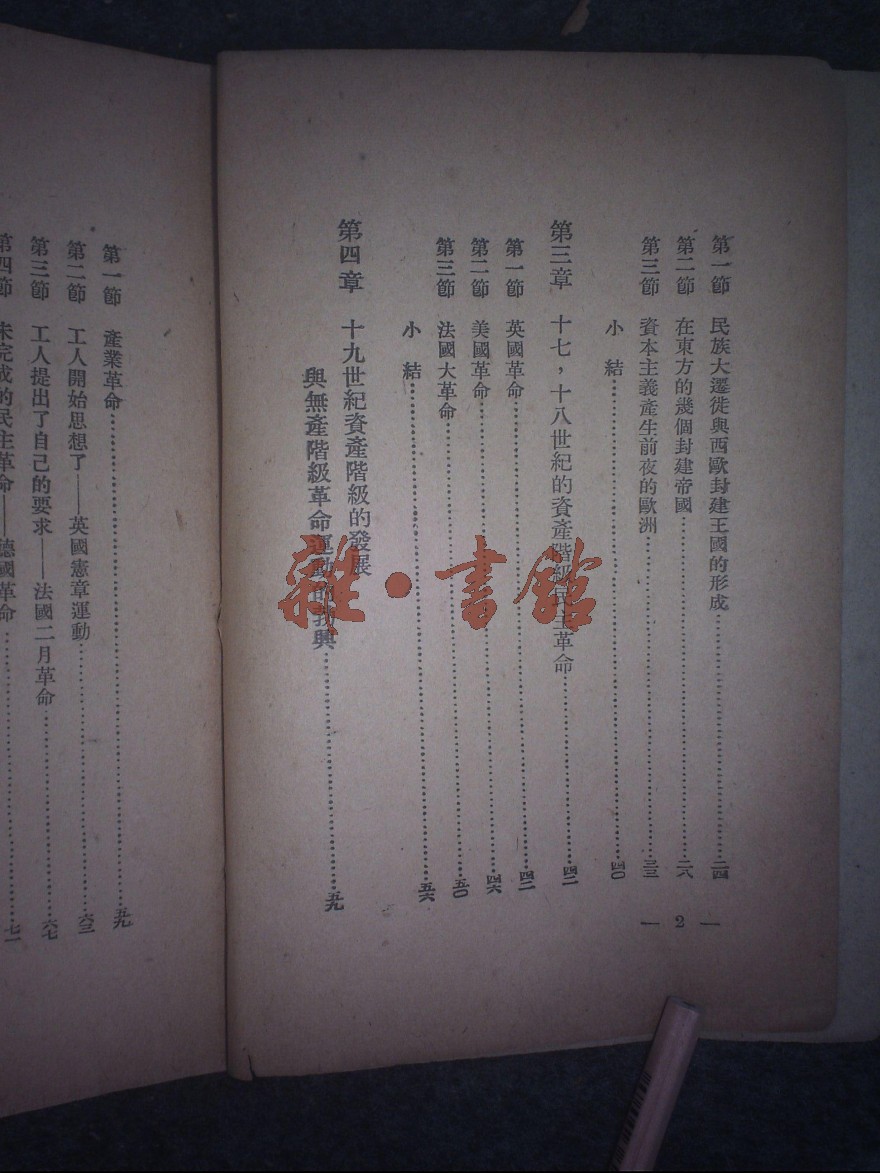 第一節 民族大遷徙與西歐封建王國的形成……二四
第二節 在東方的幾個封建帝國……二八
第三節 資本主義產生前夜的歐洲……三三
小結……四〇
第三章 十七，十八世紀的資產階級民主革命……四二
第一節 英國革命……四二
第二節 美國革命……四六
第三節 法國大革命……五〇
小結……五六
第四章 十九世紀資產階級的發展
與無產階級革命運動的 興……五九
— 2 —
第一節 產業革命……五九
第二節 工人開始思想了——英國憲章運動……六三
第三節 工人提出了自己的要求——法國二月革命……六七
第四節 未完成的民主革命——德國革命……七二
雜·書館